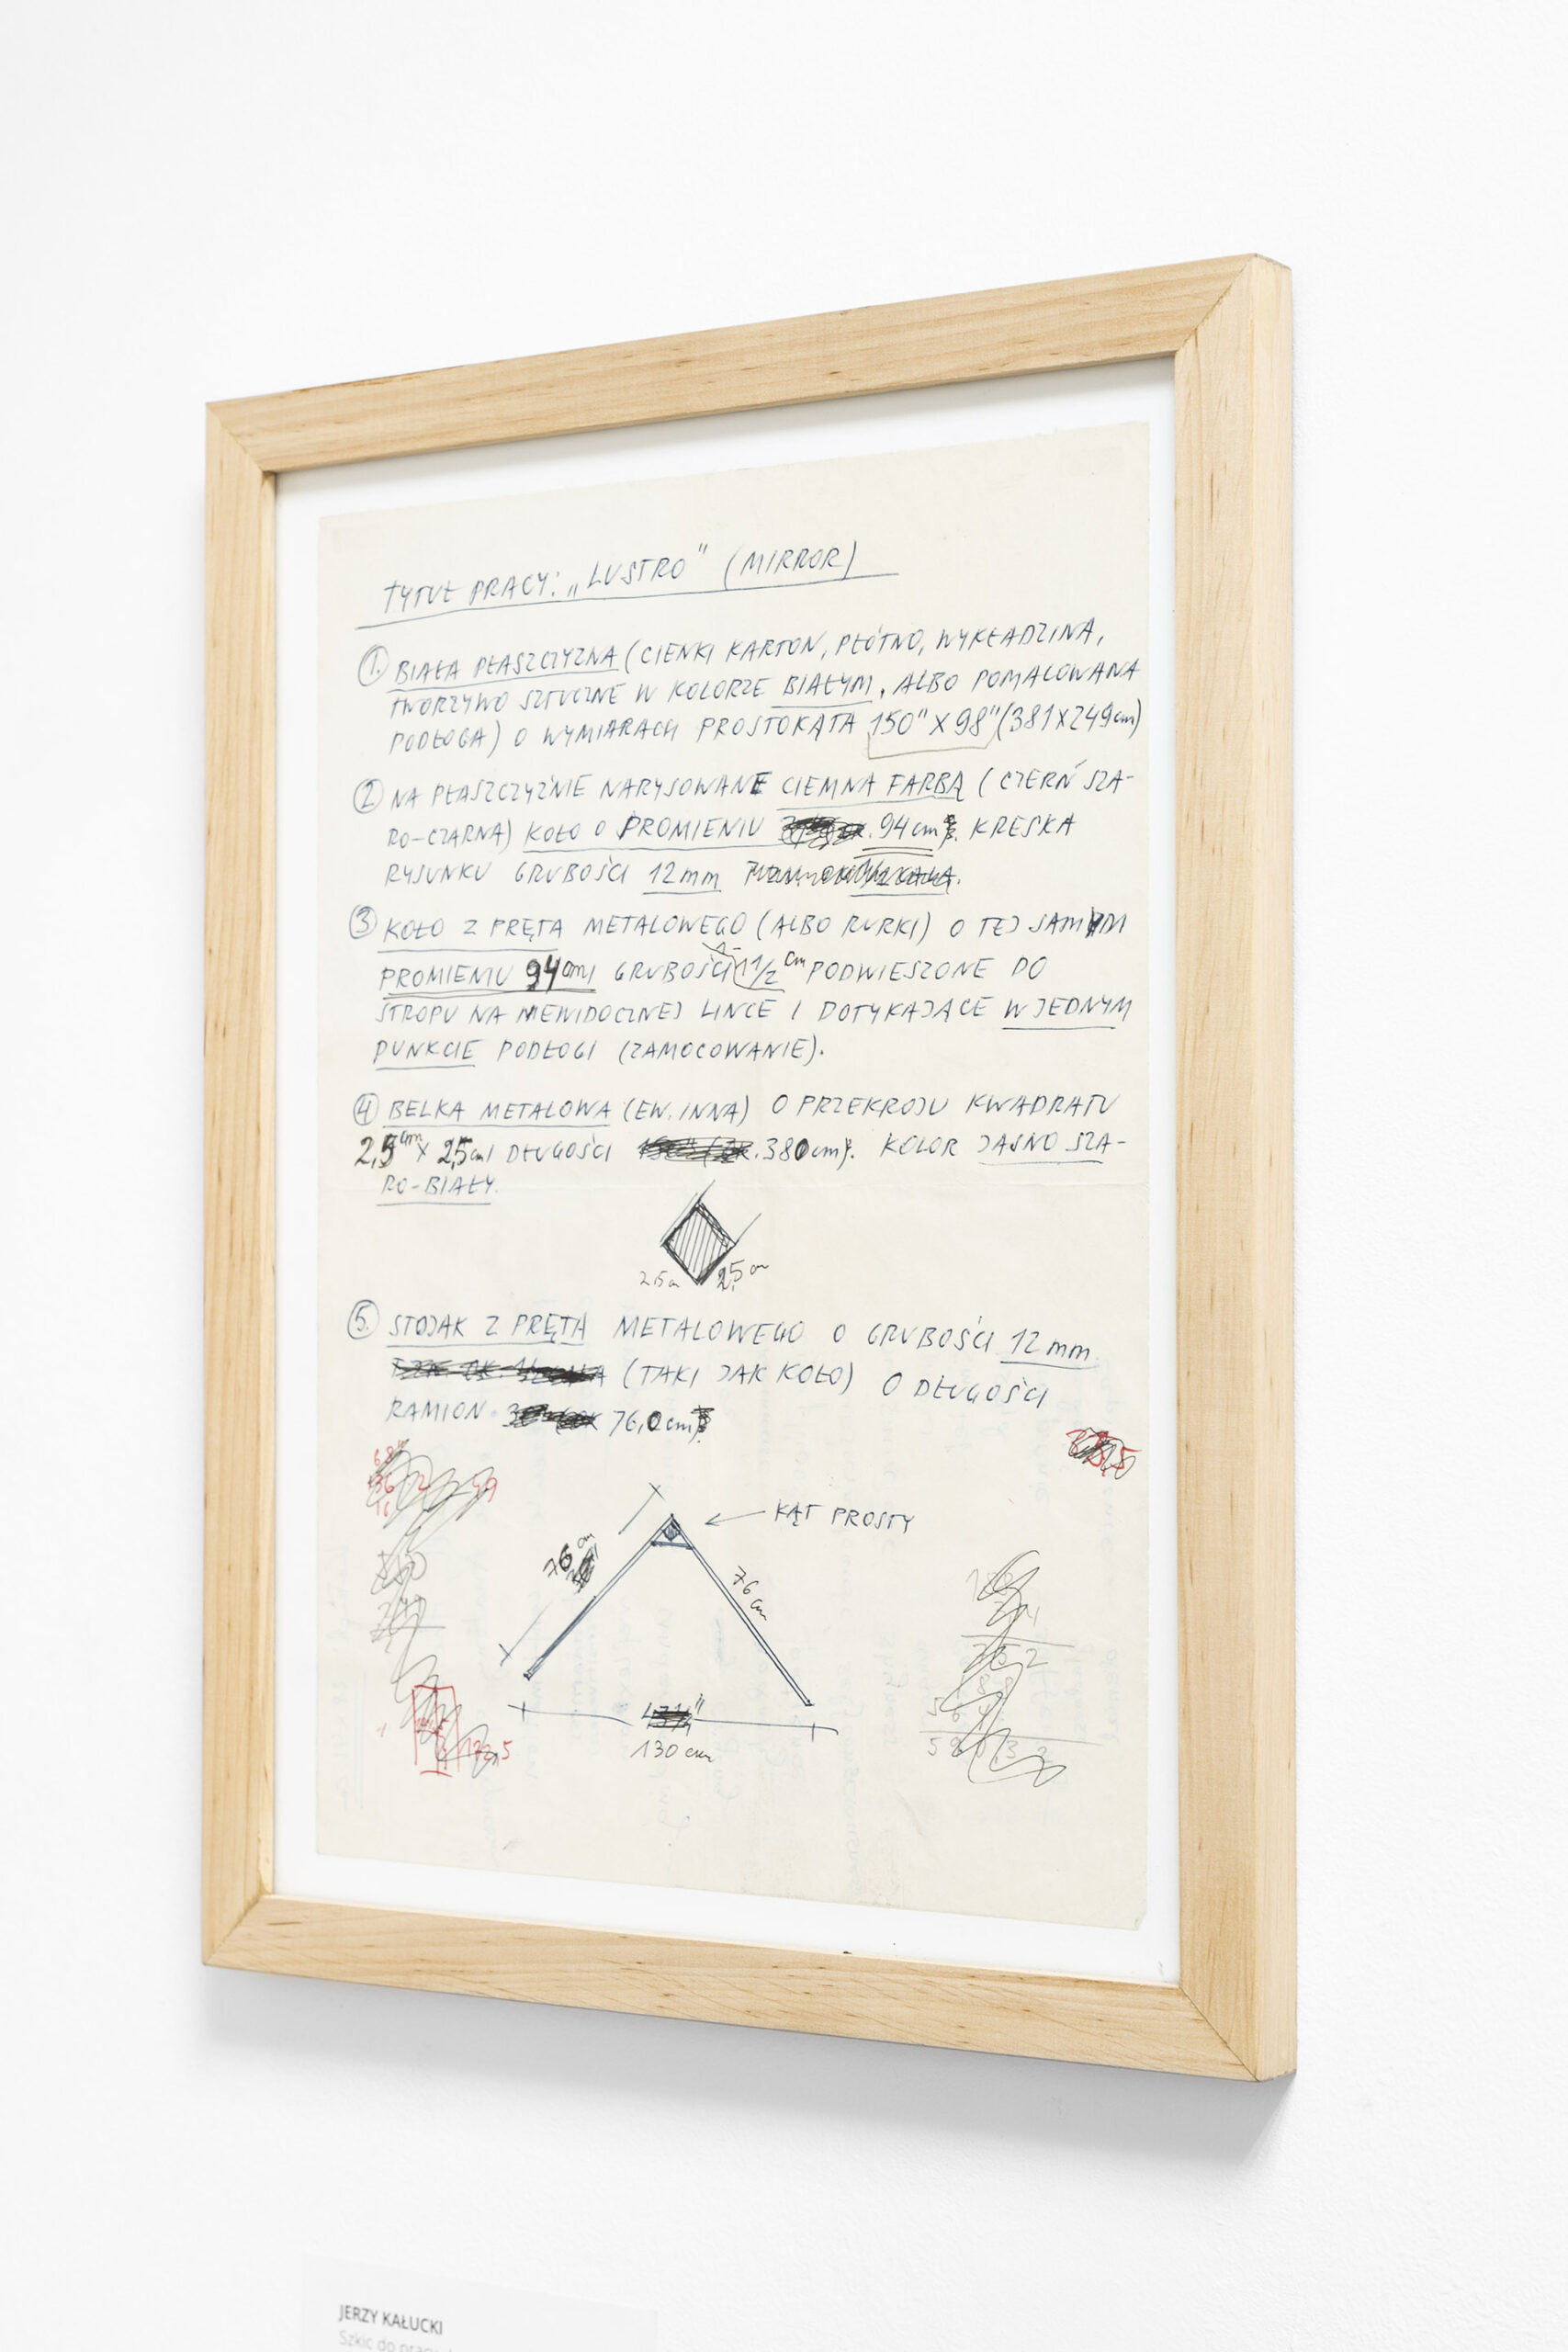 TYTUŁ PRACY: „LUSTRO" (MIRROR)
1. BIAŁA PŁASZCZYZNA (CIENKI KARTON, PŁÓTNO, WYKŁADZINA,
TWORZYWO SZTUCZNE W KOLORZE BIAŁYM, ALBO POMALOWANA
PODŁOGA) O WYMIARACH PROSTOKĄTA 150" X 98" (381X249cm)
2 NA PŁASZCZYŹNIE NARYSOWANE CIEMNA FARBĄ (CZERŃ SZA-
RO-CZARNA) KOŁO O PROMIENIU 94cm. KRESKA
RYSUNKU GRUBOŚCI 12mm
3 KOŁO Z PRĘTA METALOWEGO (ALBO RURKI) O TEJ SAMYM
PROMIENIU 94cm GRUBOŚCI 1 1/2 cm PODWIESZONE DO
STROPU NA NIEWIDOCZNEJ LINCE I DOTYKAJĄCE W JEDNYM
PUNKCIE PODŁOGI (ZAMOCOWANIE).
4 BELKA METALOWA (EW. INNA) O PRZEKROJU KWADRATU
2,5cm X 2,5cm DŁUGOŚCI 380cm. KOLOR JASNO SZA-
RO-BIAŁY.
2,5c 2,5cm
5. STOJAK Z PRĘTA METALOWEGO O GRUBOŚCI 12mm.
(TAKI JAK KOŁO) O DŁUGOŚCI
RAMION 76,0cm
KĄT PROSTY
76 cm
76 cm
130 cm
JERZY KAŁUCKI
Szkic do